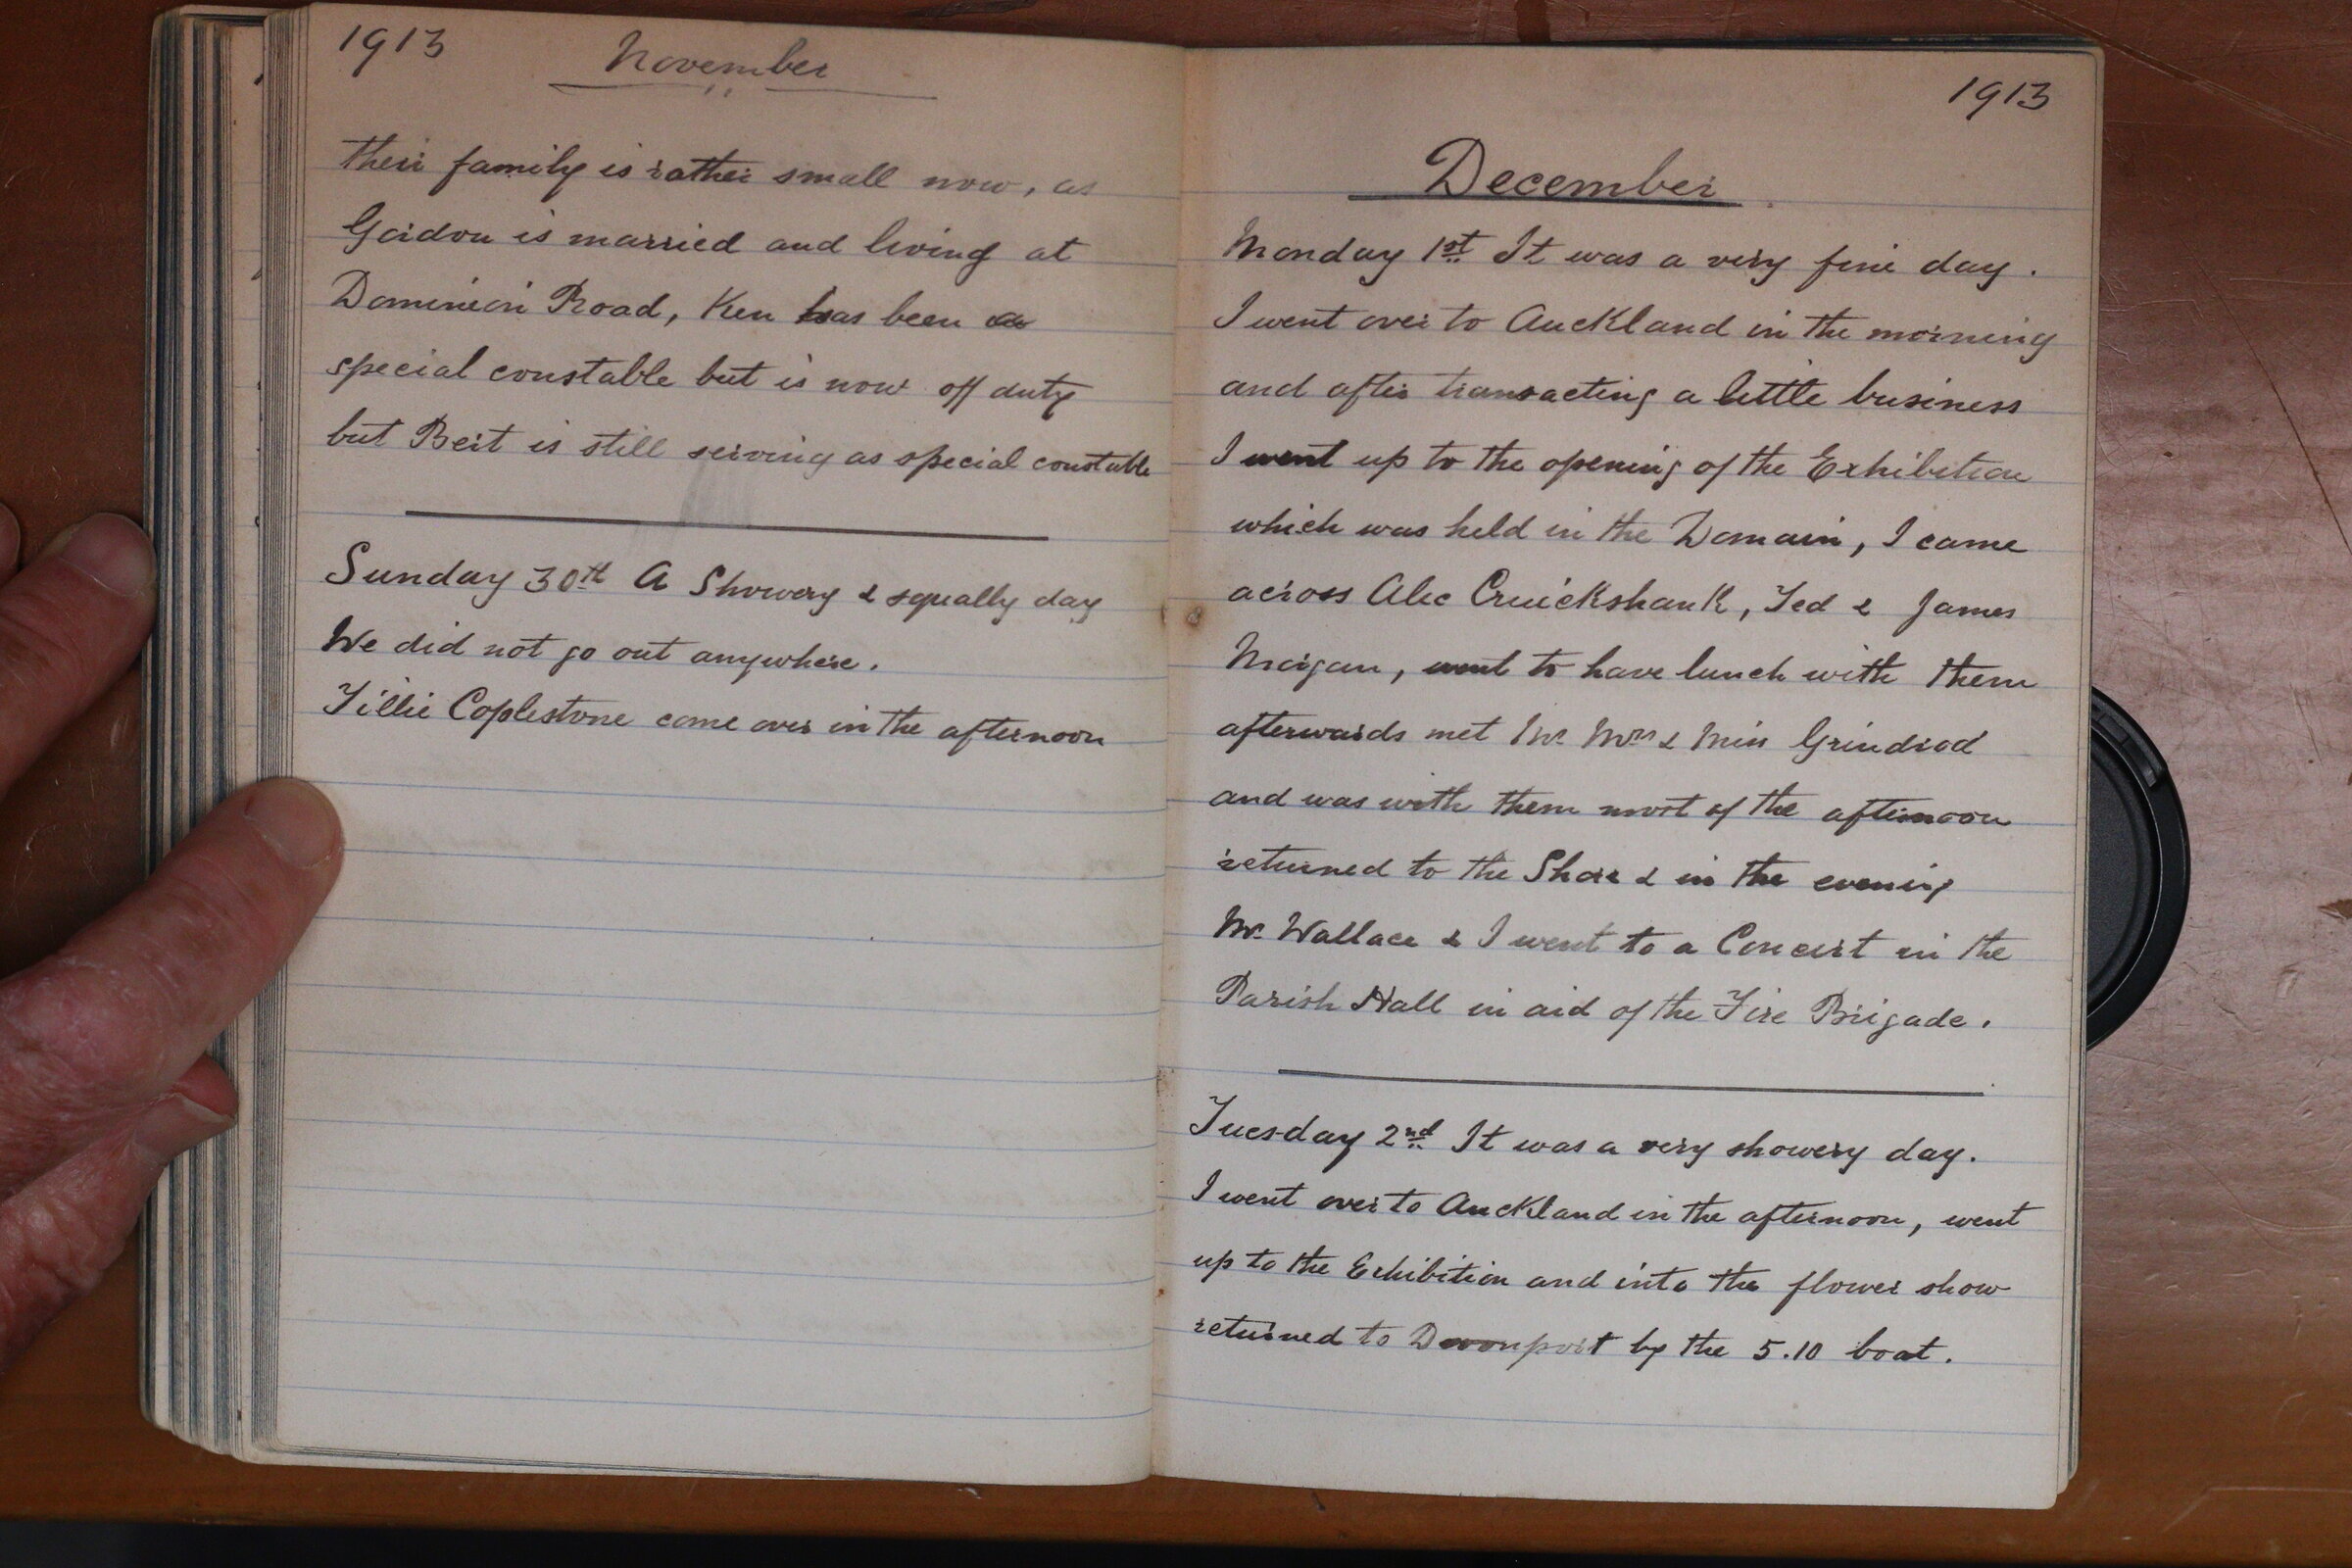 1913
November
their family is rather small now, as
Gordon is married and living at
Dominion Road, Ken has been a
special constable but is now off duty
but Bert is still serving as special constable
Sunday 30th A Showery & squally day
We did not go out anywhere.
Tillie Coplestone came over in the afternoon
1913
December
Monday 1st It was a very fine day.
I went over to Auckland in the morning
and after transacting a little business
I went up to the opening of the Exhibition
which was held in the Domain, I came
across Alec Cruickshank, Ted & James
Morgan, went to have lunch with them
afterwards met Mr Mrs & Miss Grindrod
and was with them most of the afternoon
returned to the Shore & in the evening
Mr Wallace & I went to a Concert in the
Parish Hall in aid of the Fire Brigade.
Tuesday 2nd It was a very showery day.
I went over to Auckland in the afternoon, went
up to the Exhibition and into the flower show
returned to Devonport by the 5.10 boat.